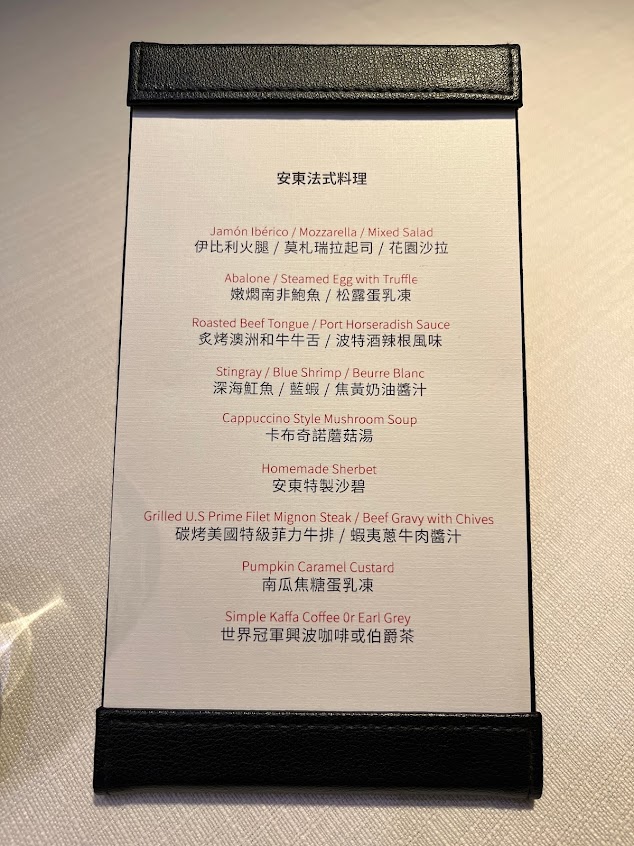 安東法式料理
Jamón Ibérico / Mozzarella / Mixed Salad
伊比利火腿 / 莫札瑞拉起司 / 花園沙拉
Abalone / Steamed Egg with Truffle
嫩燜南非鮑魚 / 松露蛋乳凍
Roasted Beef Tongue / Port Horseradish Sauce
炙烤澳洲和牛牛舌 / 波特酒辣根風味
Stingray / Blue Shrimp / Beurre Blanc
深海魟魚 / 藍蝦 / 焦黃奶油醬汁
Cappuccino Style Mushroom Soup
卡布奇諾蘑菇湯
Homemade Sherbet
安東特製沙碧
Grilled U.S Prime Filet Mignon Steak / Beef Gravy with Chives
碳烤美國特級菲力牛排 / 蝦夷蔥牛肉醬汁
Pumpkin Caramel Custard
南瓜焦糖蛋乳凍
Simple Kaffa Coffee 0r Earl Grey
世界冠軍興波咖啡或伯爵茶